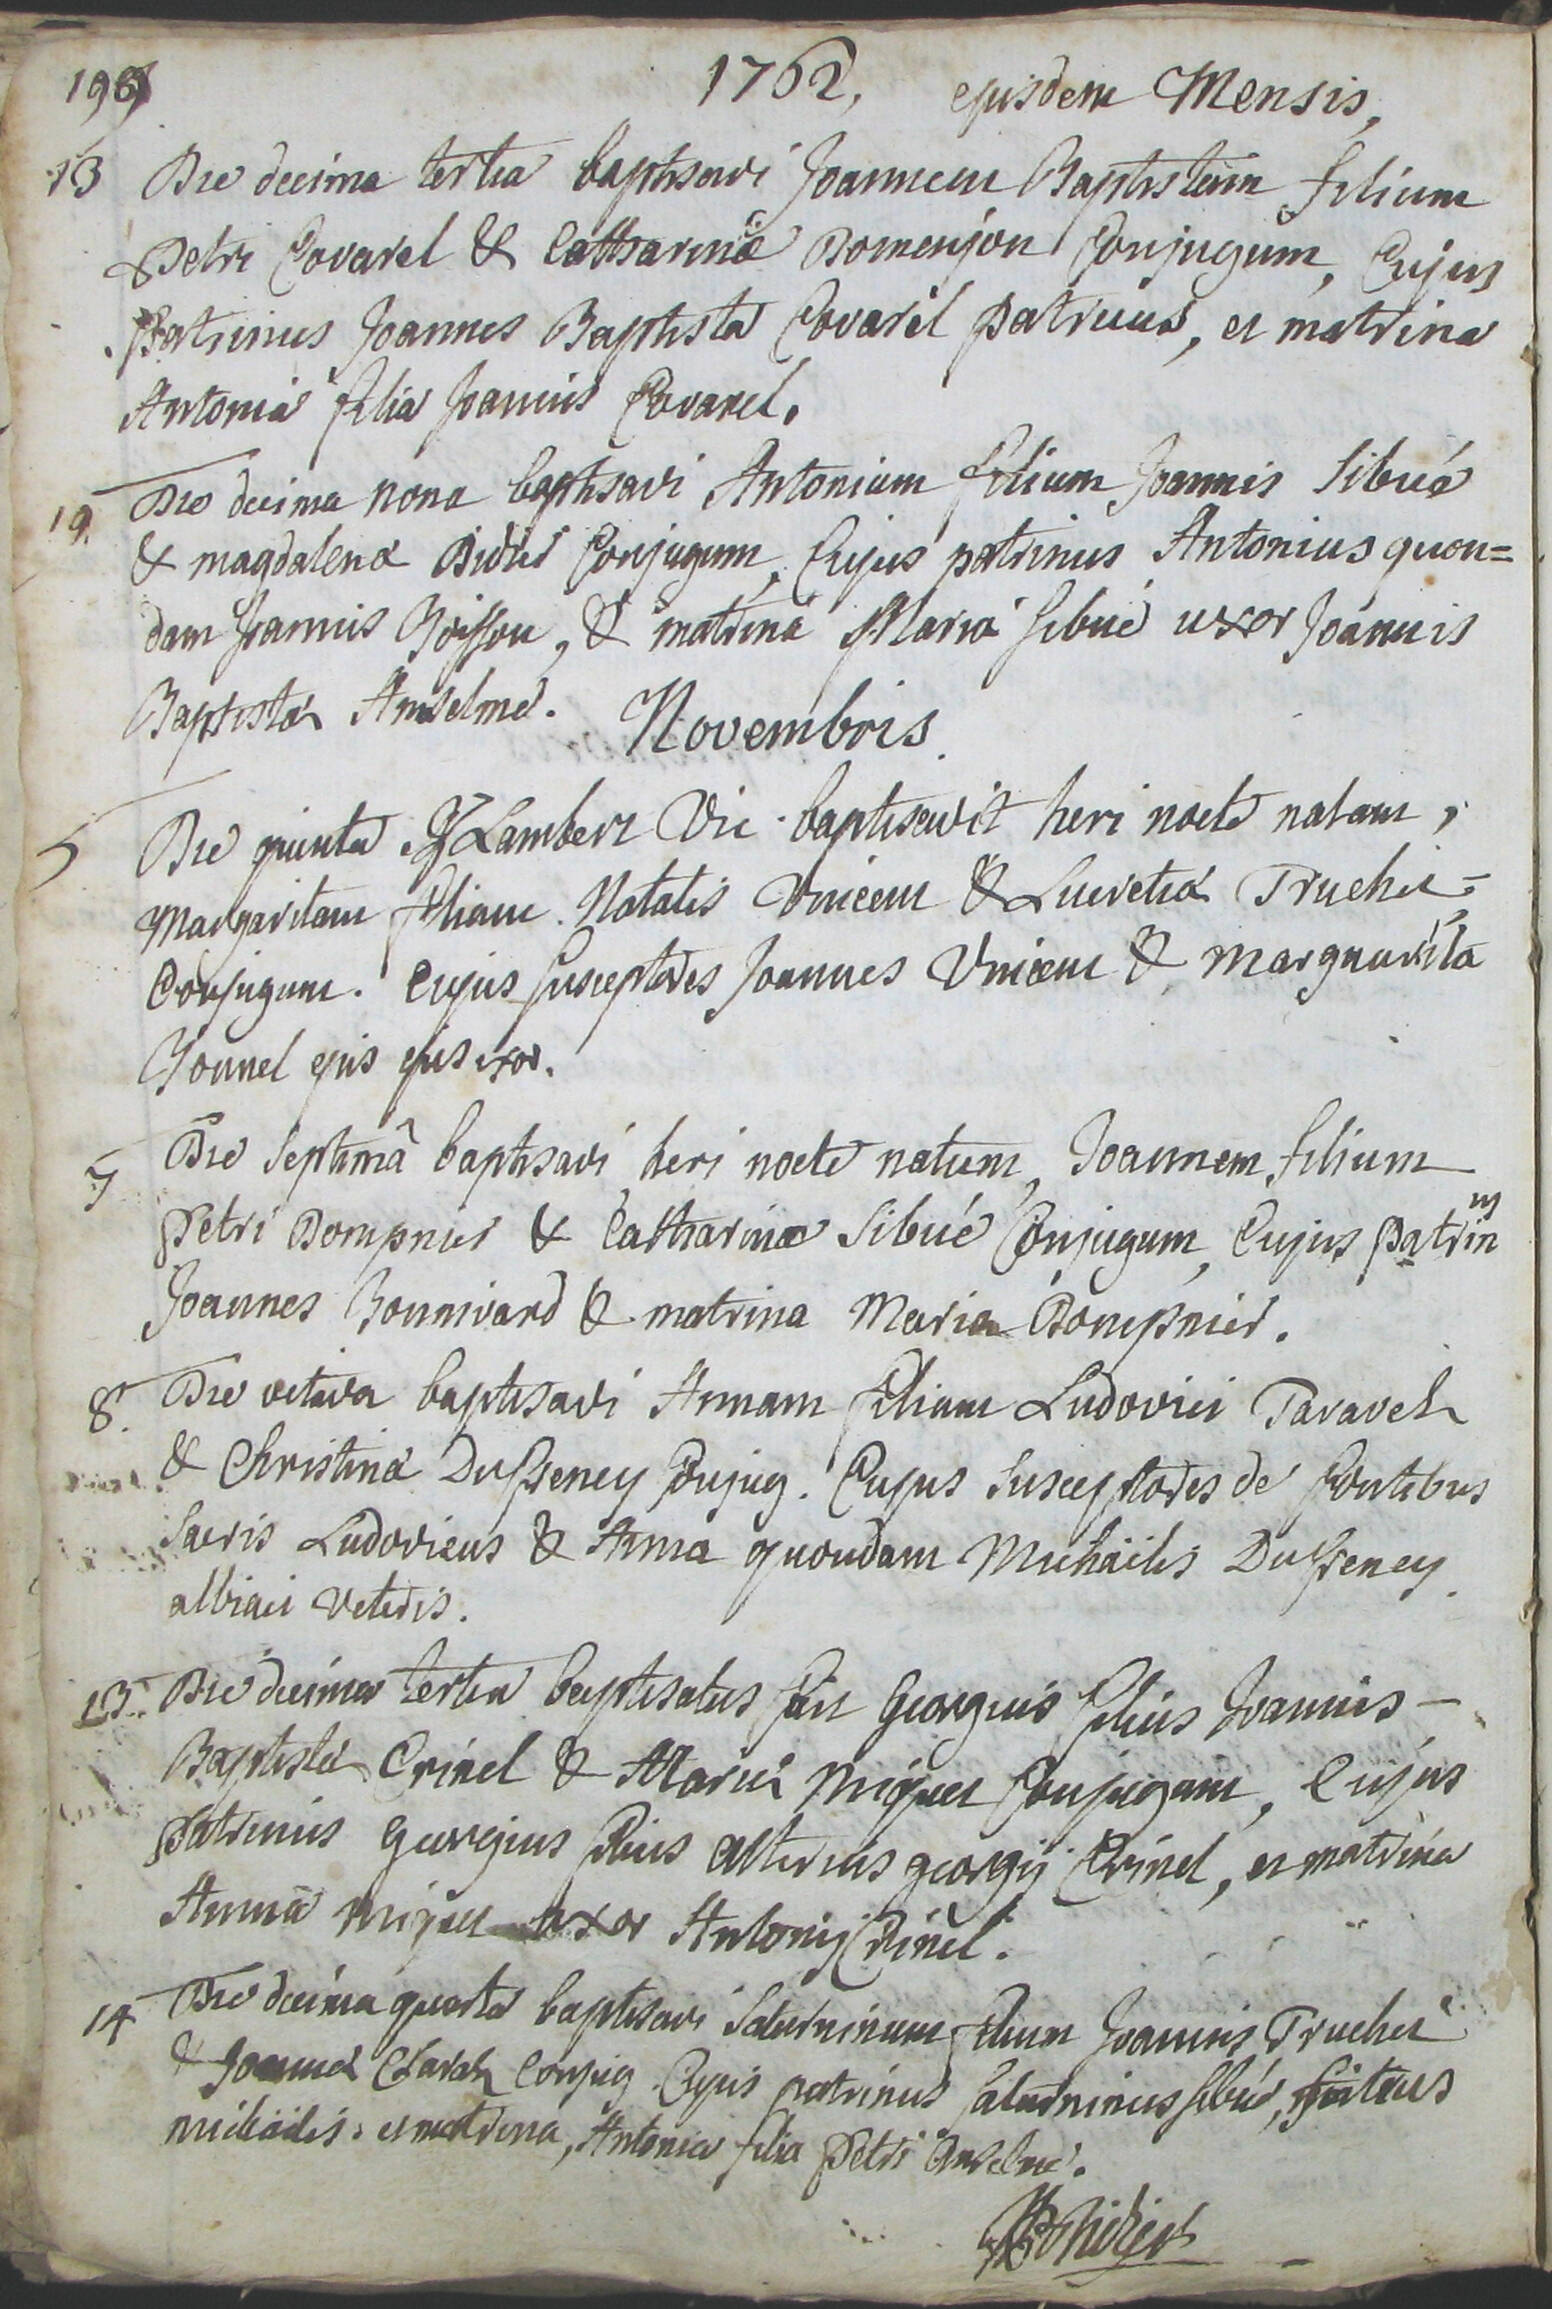 198 1762, ejusdem Mensis,
13 Die decima tertia baptisavi Joannem Baptistam filium
Petri Covarel & Catharinæ Domenjon Conjugum, Cujus
Patrinus Joannes Baptista Covarel patruus, et matrina
Antonia filia Joannis Covarel.
19. Die decima nona baptisavi Antonium filium Joannis Sibué
& magdalenæ Didier Conjugum, Cujus patrinus Antonius quon=
dam Joannis Boisson, & matrina Maria Sibué uxor Joannis
Baptistæ Anselme.
Novembris
5 Die quinta Lambert Vic. baptisavit heri nocte natam,
Margaritam filiam Natalis Vincem & Lucretiæ Truchet
Conjugum. Cujus susceptores Joannes Vincem & Marguarita
Bonnel ejus ejus uxor.
7 Die Septimâ baptisavi heri nocte natum, Joannem filium
Petri Dompnier & Catharinæ Sibué Conjugum, Cujus Patrinus
Joannes Bonnivard & matrina Maria Dompnier.
8. Die octava baptisavi Annam filiam Ludovici Taravel
& Christinæ Dufreney Conjug. Cujus Susceptores de fontibus
Sacris Ludovicus & Anna quondam Michaëlis Dufreney
albiaci veteris.
13. Die decima tertia baptisatus fuit Georgius filius Joannis
Baptistæ Crinel & Mariæ Miquet Conjugum, Cujus
Patrinus Georgius filius alterius georgij Crinel, et matrina
Anna Miquet uxor Antonij Crinel.
14 Die decima quarta baptisavi Saturninum filium Joannis Truchet
& Joannæ Conjug. Cujus patrinus Saturninus Sibué, filius
michaëlis; et matrina, Antonia filia Petri Anselme.